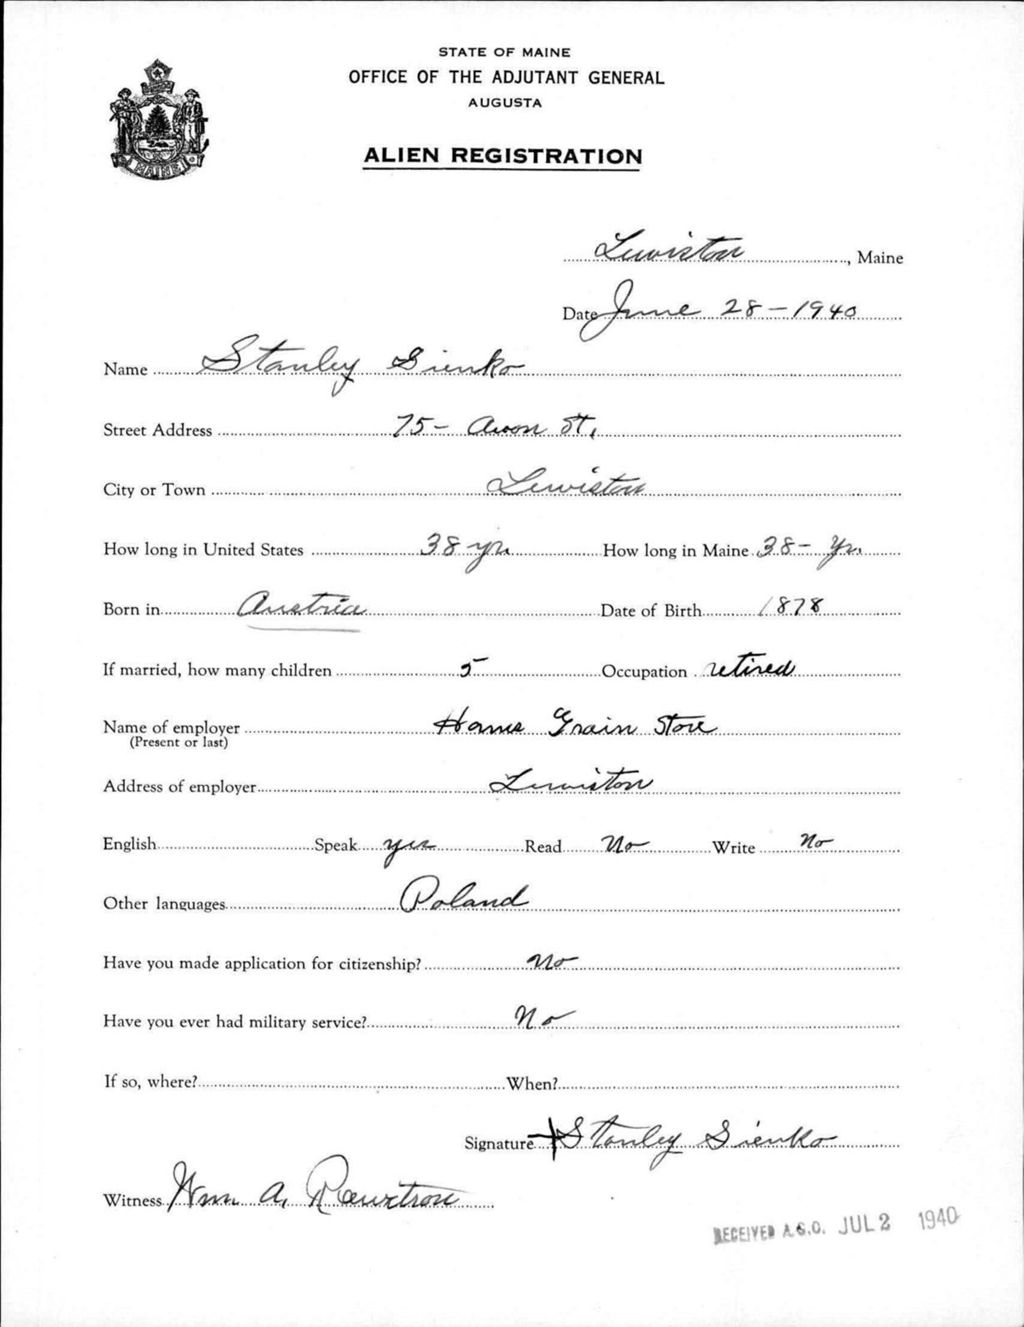 STATE OF MAINE
OFFICE OF THE ADJUTANT GENERAL
AUGUSTA
ALIEN REGISTRATION
MAINE
Lewiston, Maine
Date June 28-1940
Name Stanley Sienko
Street Address 75- Avon St,
City or Town Lewiston
How long in United States 38 yrs How long in Maine 38- Yrs
Born in Austria Date of Birth 1878
If married, how many children 5 Occupation retired
Name of employer Hams Grain Store
(Present or last)
Address of employer Lewiston
English Speak yes Read No Write No
Other languages Poland
Have you made application for citizenship? No
Have you ever had military service? No
If so, where? When?
Signature + Stanley Sienko
Witness Wm A.
RECEIVED A.G.O. JUL 2 1940